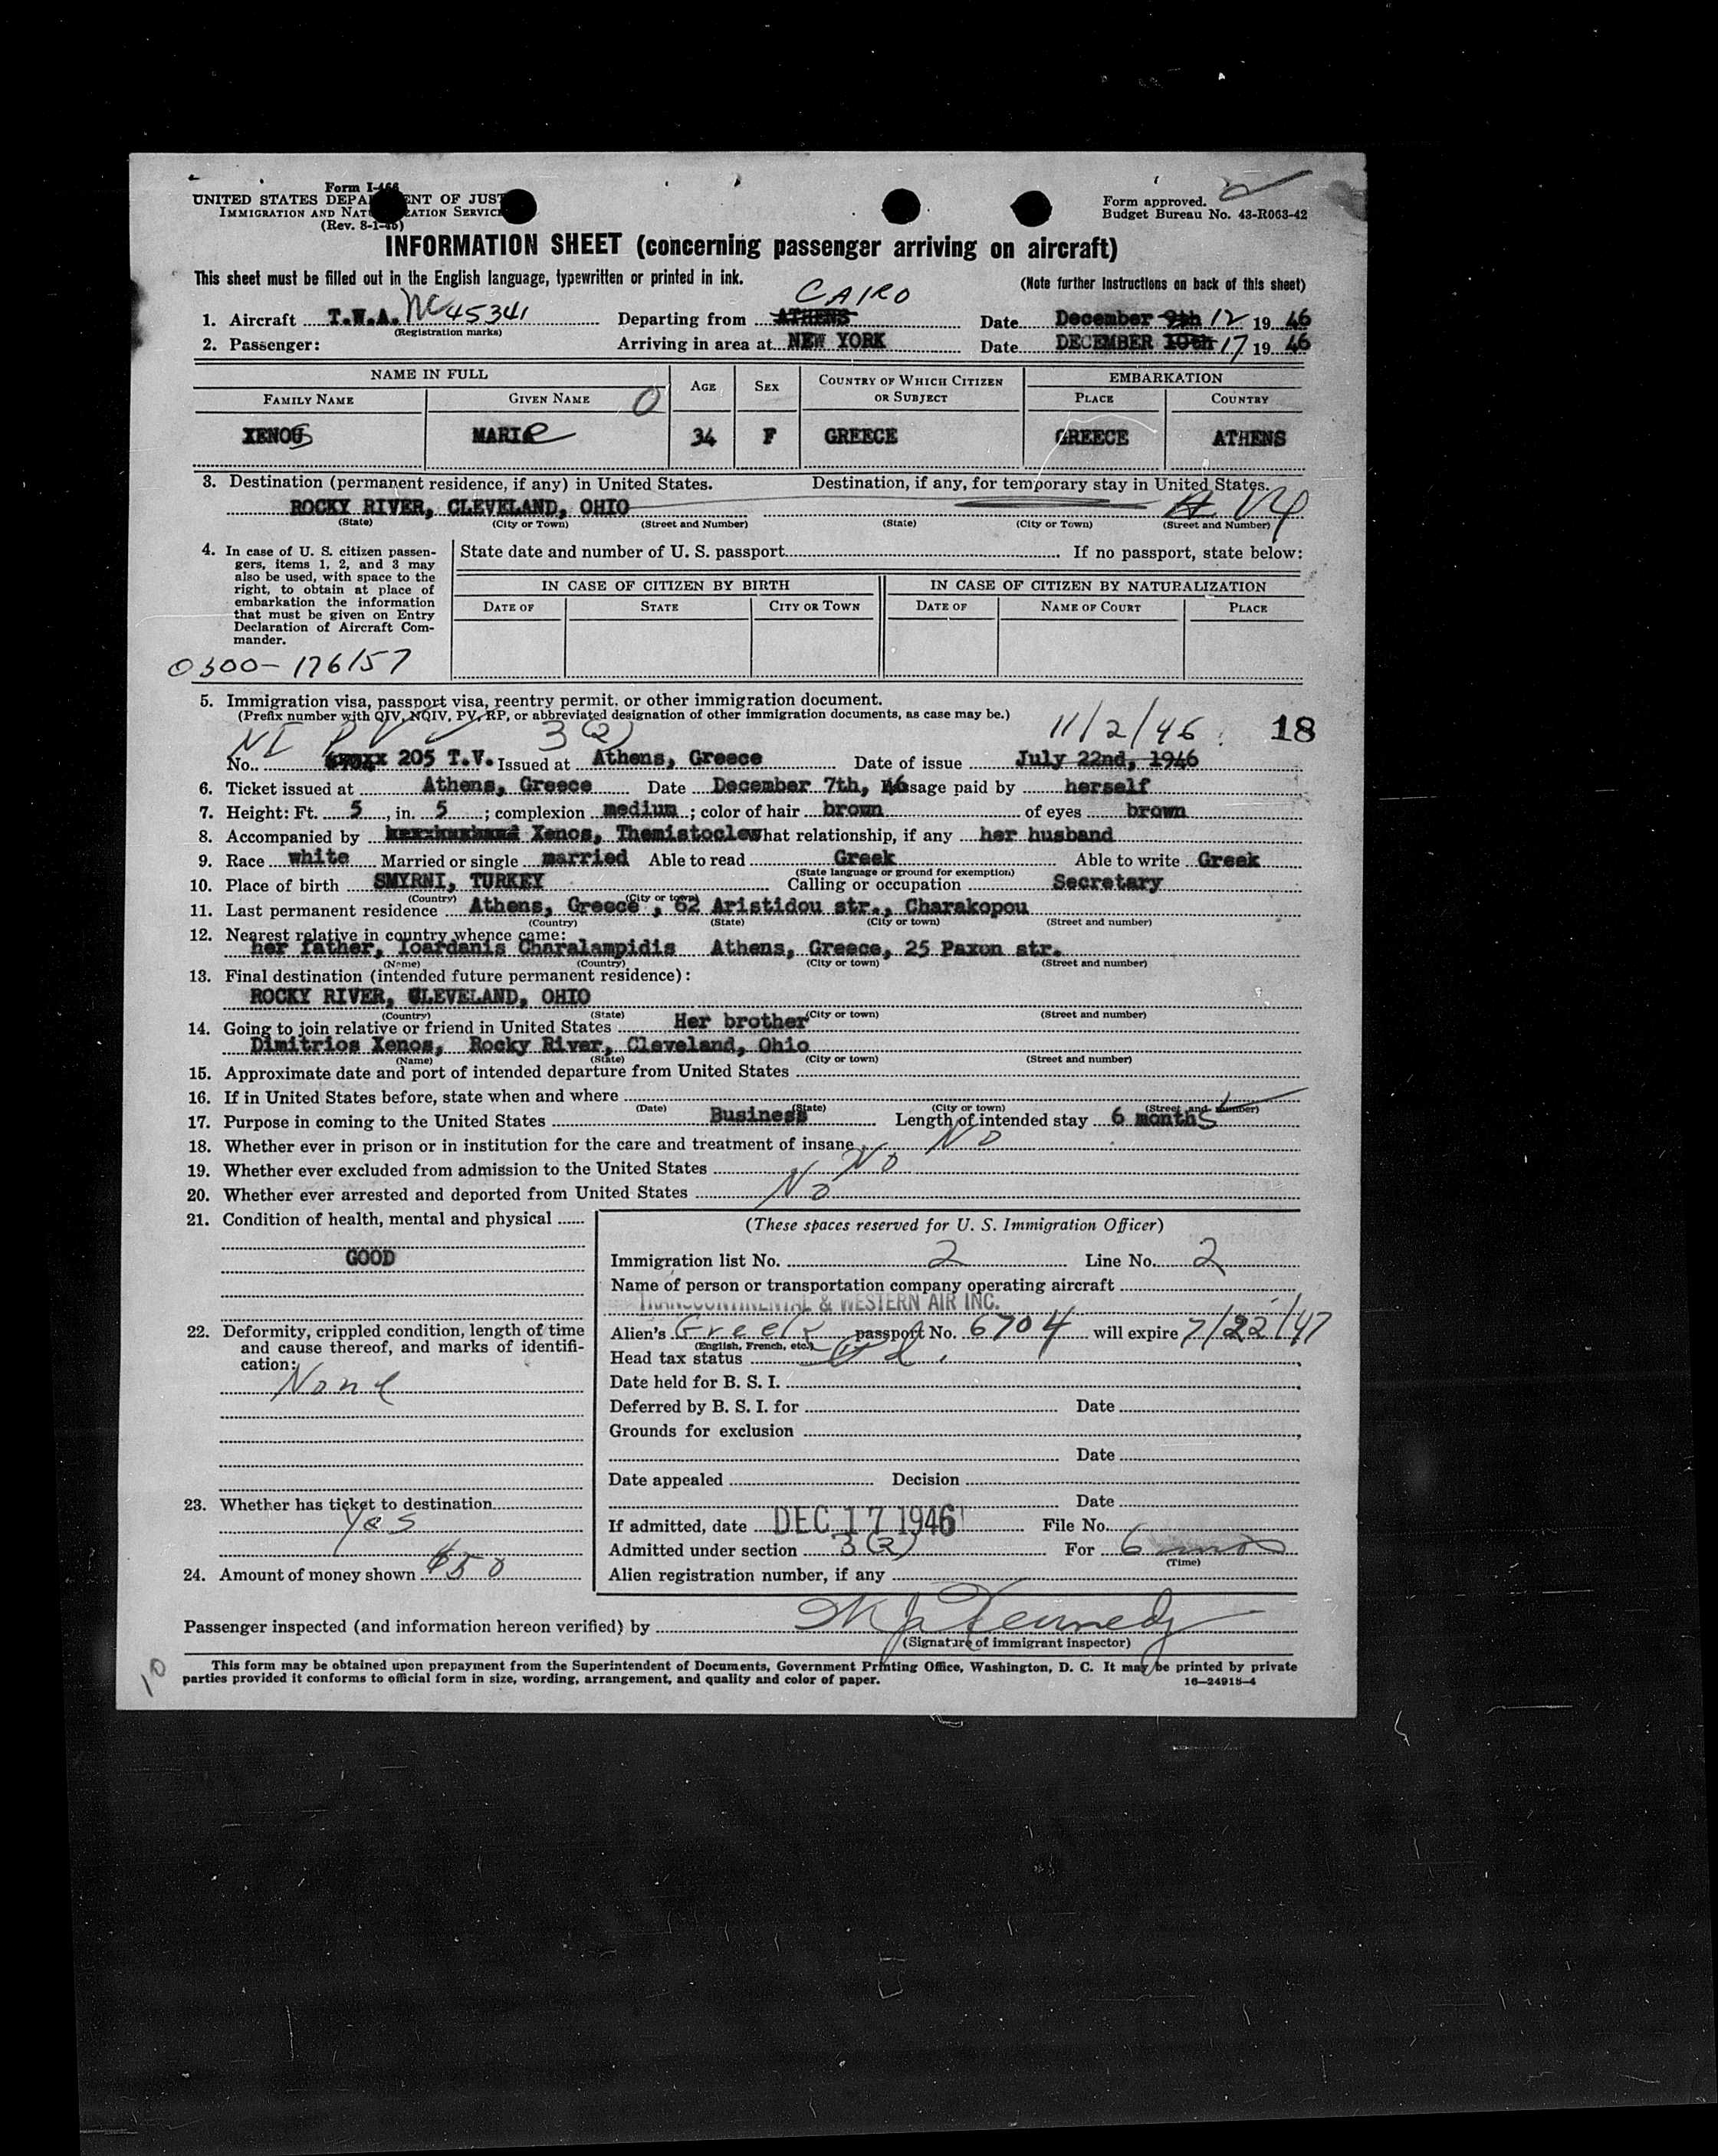 Form I-466
UNITED STATES DEPARTMENT OF JUSTICE
IMMIGRATION AND NATURALIZATION SERVICE
(Rev. 8-1-45)
Form approved.
Budget Bureau No. 43-R063-42
INFORMATION SHEET (concerning passenger arriving on aircraft)
This sheet must be filled out in the English language, typewritten or printed in ink.
(Note further instructions on back of this sheet)
CAIRO
1. Aircraft T.W.A. NC 45341 Departing from ATHENS Date December 9th 12 1946
(Registration marks)
2. Passenger: Arriving in area at NEW YORK Date DECEMBER 10th 17 1946
NAME IN FULL AGE SEX COUNTRY OF WHICH CITIZEN OR SUBJECT EMBARKATION
FAMILY NAME GIVEN NAME 0 PLACE COUNTRY
XENOS MARIE 34 F GREECE GREECE ATHENS
3. Destination (permanent residence, if any) in United States. Destination, if any, for temporary stay in United States.
ROCKY RIVER, CLEVELAND, OHIO
(State) (City or Town) (Street and Number) (State) (City or Town) (Street and Number)
4. In case of U. S. citizen passengers, items 1, 2, and 3 may also be used, with space to the right, to obtain at place of embarkation the information that must be given on Entry Declaration of Aircraft Commander.
State date and number of U. S. passport If no passport, state below:
IN CASE OF CITIZEN BY BIRTH IN CASE OF CITIZEN BY NATURALIZATION
DATE OF STATE CITY OR TOWN DATE OF NAME OF COURT PLACE
0300-176157
5. Immigration visa, passport visa, reentry permit, or other immigration document.
(Prefix number with QIV, NQIV, PV, RP, or abbreviated designation of other immigration documents, as case may be.)
NI PV 3(2) 11/2/46 18
No. 205 T.V. Issued at Athens, Greece Date of issue July 22nd, 1946
6. Ticket issued at Athens, Greece Date December 7th, 46 Passage paid by herself
7. Height: Ft. 5, in. 5; complexion medium; color of hair brown of eyes brown
8. Accompanied by Xenos, Themistocles What relationship, if any her husband
9. Race white Married or single married Able to read Greek Able to write Greek
(State language or ground for exemption)
10. Place of birth SMYRNI, TURKEY Calling or occupation Secretary
(Country) (City or town)
11. Last permanent residence Athens, Greece, 62 Aristidou str., Charakopou
(Country) (State) (City or town) (Street and number)
12. Nearest relative in country whence came:
her father, Ioardanis Charalampidis Athens, Greece, 25 Paxon str.
(Name) (Country) (City or town) (Street and number)
13. Final destination (intended future permanent residence):
ROCKY RIVER, CLEVELAND, OHIO
(Country) (State) (City or town) (Street and number)
14. Going to join relative or friend in United States Her brother
Dimitrios Xenos, Rocky River, Cleveland, Ohio
(Name) (State) (City or town) (Street and number)
15. Approximate date and port of intended departure from United States
16. If in United States before, state when and where
(Date) (State) (City or town) (Street and number)
17. Purpose in coming to the United States Business Length of intended stay 6 months
18. Whether ever in prison or in institution for the care and treatment of insane No
19. Whether ever excluded from admission to the United States No
20. Whether ever arrested and deported from United States No
21. Condition of health, mental and physical
GOOD
22. Deformity, crippled condition, length of time and cause thereof, and marks of identification:
None
23. Whether has ticket to destination
Yes
24. Amount of money shown $50
(These spaces reserved for U. S. Immigration Officer)
Immigration list No. 2 Line No. 2
Name of person or transportation company operating aircraft
TRANSCONTINENTAL & WESTERN AIR INC.
Alien's Greek passport No. 6704 will expire 7/22/47
(English, French, etc.)
Head tax status
Date held for B. S. I.
Deferred by B. S. I. for Date
Grounds for exclusion
Date
Date appealed Decision
Date
If admitted, date DEC 17 1946 File No.
Admitted under section 3(2) For 6 mos
(Time)
Alien registration number, if any
Passenger inspected (and information hereon verified) by Kennedy
(Signature of immigrant inspector)
This form may be obtained upon prepayment from the Superintendent of Documents, Government Printing Office, Washington, D. C. It may be printed by private
parties provided it conforms to official form in size, wording, arrangement, and quality and color of paper. 16-24915-4
10